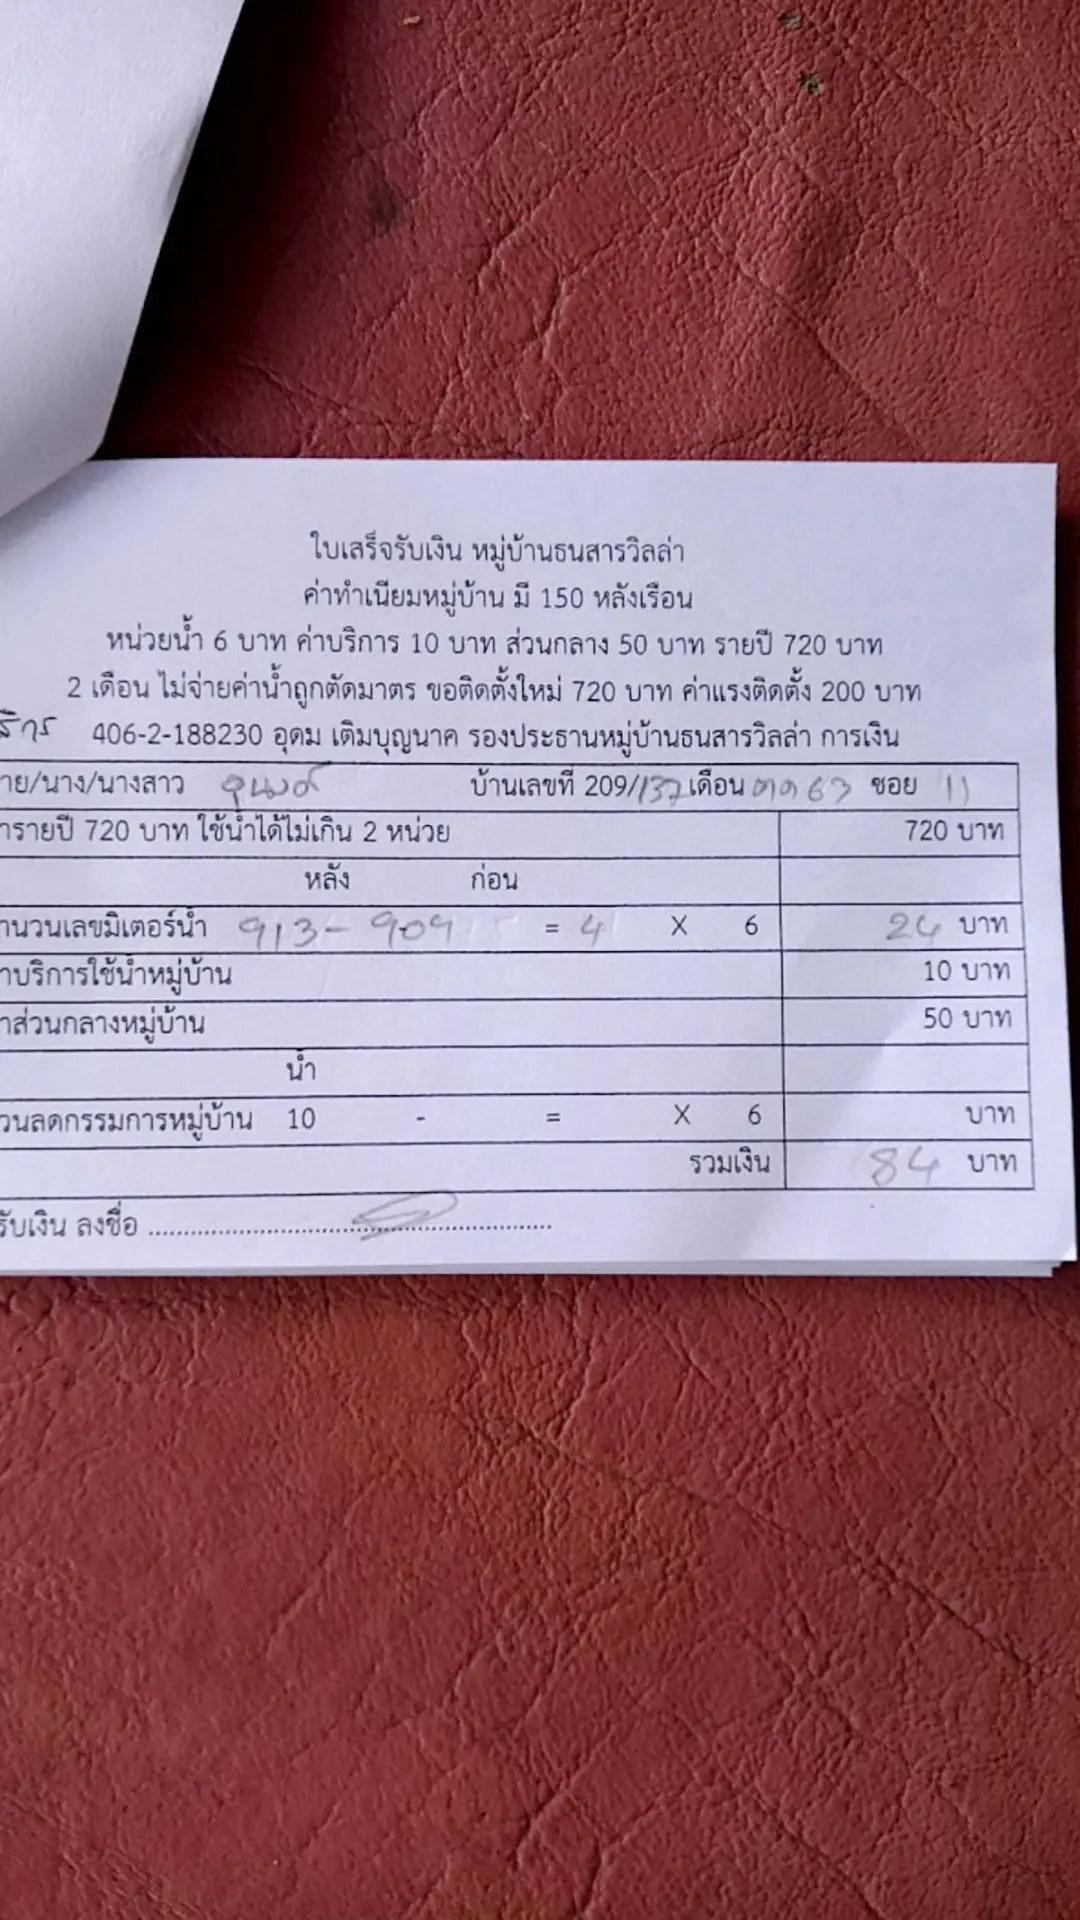 ใบเสร็จรับเงิน หมู่บ้านธนสารวิลล่า
ค่าทำเนียมหมู่บ้าน มี 150 หลังเรือน
หน่วยน้ำ 6 บาท ค่าบริการ 10 บาท ส่วนกลาง 50 บาท รายปี 720 บาท
2 เดือน ไม่จ่ายค่าน้ำถูกตัดมาตร ขอติดตั้งใหม่ 720 บาท ค่าแรงติดตั้ง 200 บาท
406-2-188230 อุดม เติมบุญนาค รองประธานหมู่บ้านธนสารวิลล่า การเงิน
าย/นาง/นางสาว บ้านเลขที่ 209/137 เดือน ตค 63 ซอย 11
ารายปี 720 บาท ใช้น้ำได้ไม่เกิน 2 หน่วย 720 บาท
หลัง ก่อน
านวนเลขมิเตอร์น้ำ 913 - 909 = 4 X 6 24 บาท
าบริการใช้น้ำหมู่บ้าน 10 บาท
าส่วนกลางหมู่บ้าน 50 บาท
น้ำ
วนลดกรรมการหมู่บ้าน 10 - = X 6 บาท
รวมเงิน 84 บาท
รับเงิน ลงชื่อ